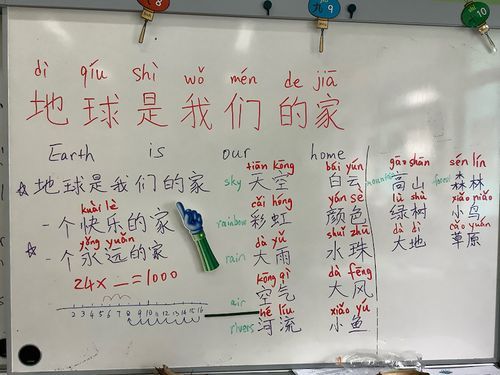 8
9
10
dì qiú shì wǒ mén de jiā
地球是我们的家
Earth is our home
地球是我们的家
kuài lè
一个快乐的家
yǒng yuǎn
一个永远的家
24× =1000
2 3 4 5 6 7 8 9 10 11 12 13 14 15 16
tiān kōng bái yún
sky 天空 白云
cǎi hóng yán sè
rainbow 彩虹 颜色
dà yǔ shuǐ zhū
rain 大雨 水珠
kōng qì dà fēng
air 空气 大风
hé liú xiǎo yú
rivers 河流 小鱼
gāo shān sēn lín
mountain 高山 forest 森林
lǜ shù xiǎo niǎo
绿树 小鸟
dà dì cǎo yuán
大地 草原